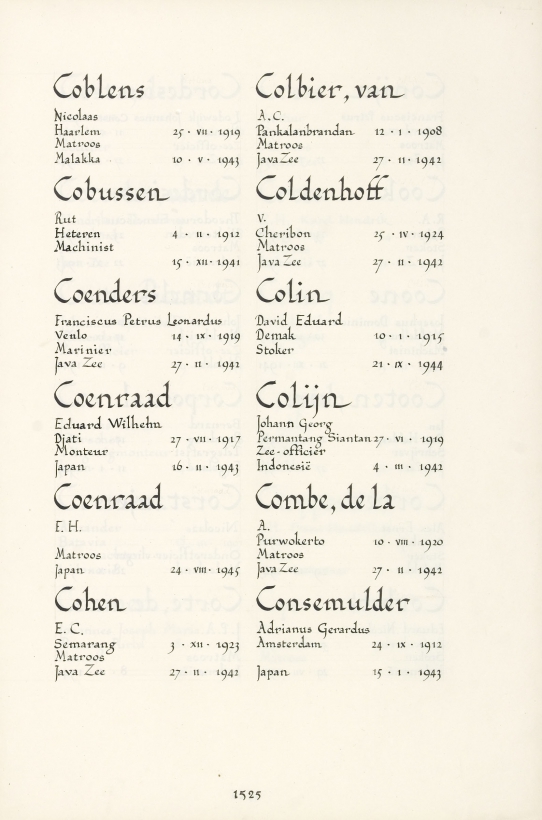 Coblens
Nicolaas
Haarlem 25 · VII · 1919
Matroos
Malakka 10 · V · 1943
Cobussen
Rut
Heteren 4 · II · 1912
Machinist
15 · XII · 1941
Coenders
Franciscus Petrus Leonardus
Venlo 14 · IX · 1919
Marinier
Java Zee 27 · II · 1942
Coenraad
Eduard Wilhelm
Djati 27 · VII · 1917
Monteur
Japan 16 · II · 1943
Coenraad
F. H.
Matroos
Japan 24 · VIII · 1945
Cohen
E. C.
Semarang 3 · XII · 1923
Matroos
Java Zee 27 · II · 1942
Colbier, van
A. C.
Pankalanbrandan 12 · I · 1908
Matroos
Java Zee 27 · II · 1942
Coldenhoff
V.
Cheribon 25 · IV · 1924
Matroos
Java Zee 27 · II · 1942
Colin
David Eduard
Demak 10 · I · 1915
Stoker
21 · IX · 1944
Colijn
Johann Georg
Permantang Siantan 27 · VI · 1919
Zee-officier
Indonesië 4 · III · 1942
Combe, de la
A.
Purwokerto 10 · VIII · 1920
Matroos
Java Zee 27 · II · 1942
Consemulder
Adrianus Gerardus
Amsterdam 24 · IX · 1912
Japan 15 · I · 1943
1525